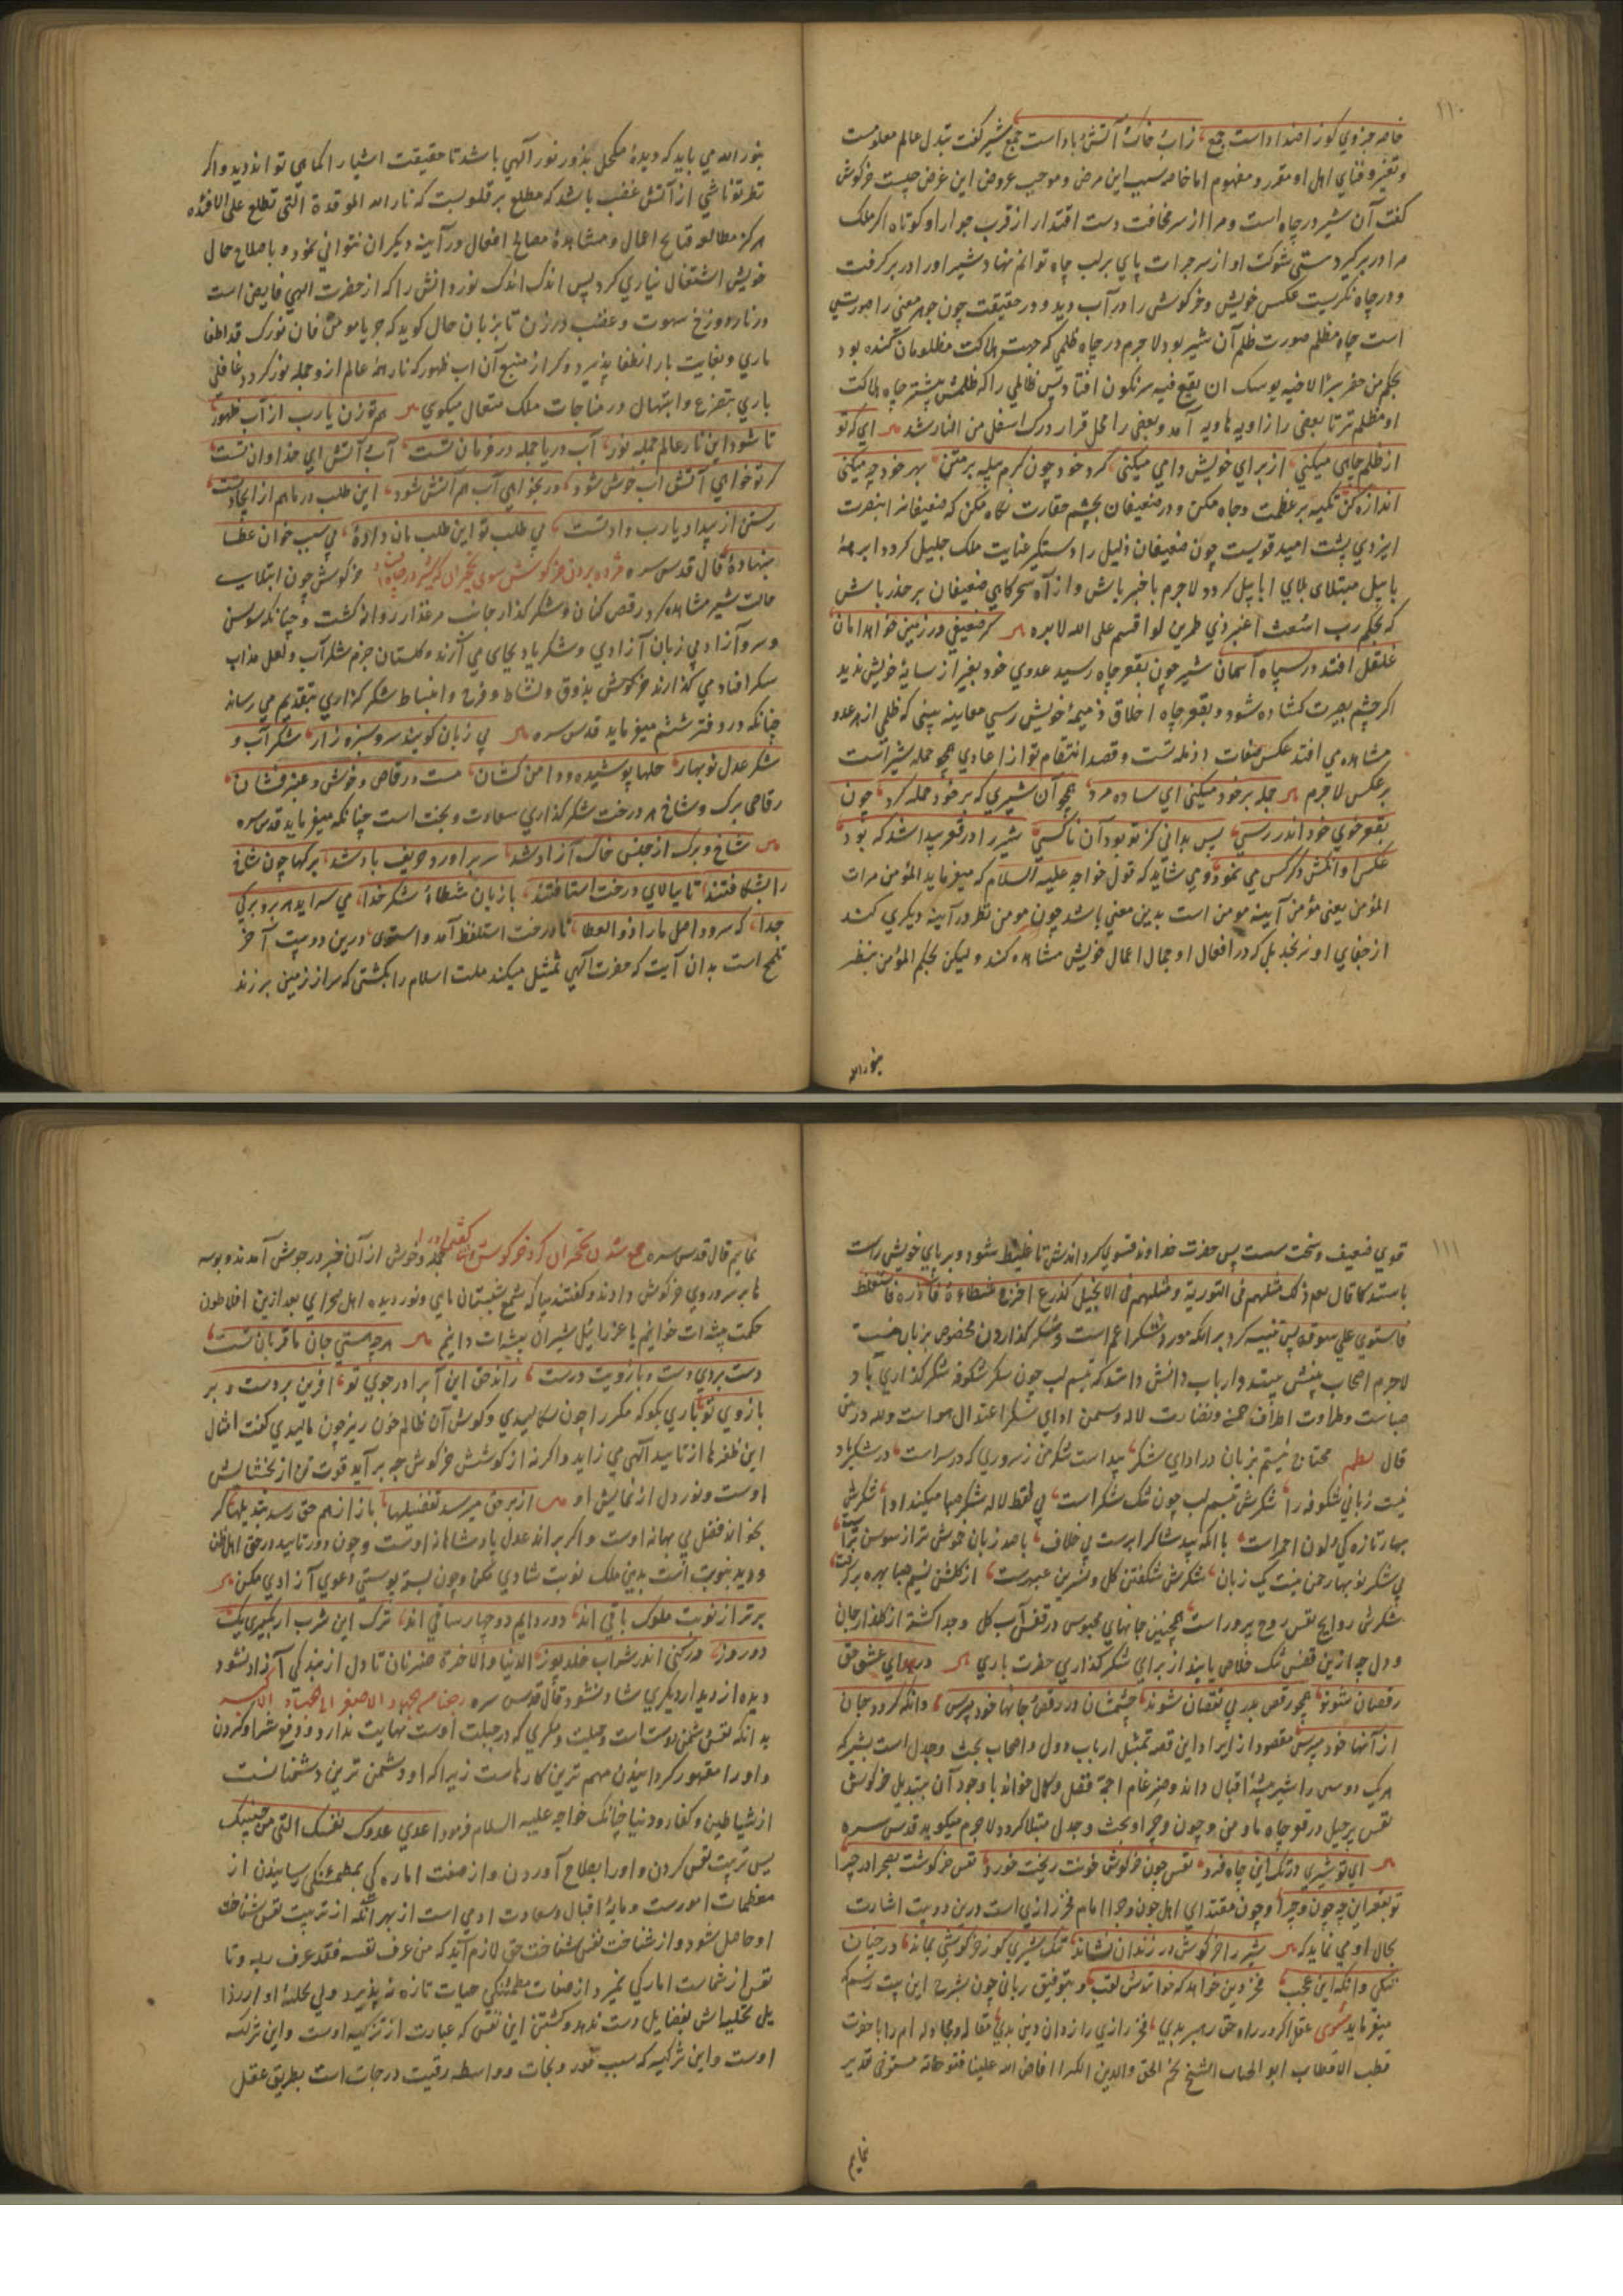 ۱۱۰
خاصه جزوی کو ز اضداد است جمع زآب و خاک و آتش و باد است جمع شیر گفت تبدل عالم معلومست
و تغیر و فنای اهل او مقرر و مفهوم اما خاصه سبب این مرض و موجب عروض این عرض چیست خرگوش
گفت آن شیر در چاه است و مرا از سر مخافت دست اقتدار از قرب جوار او کوتاه اگر ملک
مرا در بر گیرد بستی شوکت او از سر جرات پای بر لب چاه توانم نهاد شیر او را در بر گرفت
و در چاه نگریست عکس خویش و خرگوش را در آب دید و در حقیقت چون هر معنی را صورتی
است چاه مظلم صورت ظلم آن شیر بود لاجرم در چاه ظلمی که جهت هلاکت مظلومان کنده بود
بحکم من حفر بئرا لاخیه یوشک ان یقع فیه سرنگون افتاد پس ظالمی را که ظلمش بیشتر چاه هلاکت
او مظلم تر تا بعضی را زاویه هاویه آمد و بعضی را محل قرار درک اسفل من النار شد ای که تو
از ظلم چاهی میکنی از برای خویش دامی میکنی گرد خود چون کرم پیله بر متن بهر خود چه میکنی
اندازه کن تکیه بر عظمت و جاه مکن و در ضعیفان بچشم حقارت نگاه مکن که ضعیفانه ابنصرت
ایزدی پشت امید قویست چون ضعیفان ذلیل را دستگیر عنایت ملک جلیل گردد ابرهه
با پیل مبتلای بلای ابابیل گردد لاجرم با خبر باش و از آه سحرگاهی ضعیفان بر حذر باش
که بحکم رب اشعث اغبر ذی طمرین لو اقسم علی الله لابره گر ضعیفی در زمین خواهد امان
غلغل افتد در سپاه آسمان شیر چون بقعر چاه رسید عدوی خود بغیر از سایه خویش ندید
اگر چشم بصیرت گشاده شود و بقعر چاه اخلاق ذمیمه خویش رسی معاینه بینی که ظلمی از هر عدو
مشاهده می افتد عکس صفات ذمیمه تست و قصد انتقام تو از اعادی همچو حمله شیر است
بر عکس لاجرم حمله بر خود میکنی ای ساده مرد همچو آن شیری که بر خود حمله کرد چون
بقعر خوی خود اندر رسی پس بدانی کز تو بود آن ناکسی شیر را در قعر پیدا شد که بود
عکس او آنکش دگر کس می نمود و می شاید که قول خواجه علیه السلام که میفرماید المؤمن مرات
المؤمن یعنی مؤمن آیینه مومن است بدین معنی باشد چون مومن نظر در آیینه دیگری کند
از جفای او نرنجد بل که در افعال او جمال اعمال خویش مشاهده کند و لیکن بحکم المؤمن ینظر
بنور الله
بنور الله می باید که دیده مکحل بذرور نور آلهی باشد تا حقیقت اشیا را کما هی تواند دید و اگر
نظر تو ناشی از آتش غضب باشد که مطلع بر قلوبست که نار الله الموقدة التی تطلع علی الافئده
هرگز مطالعه قبایح اعمال و مشاهده مصالح افعال در آیینه دیگران نتوانی نمود و باصلاح حال
خویش اشتغال نیاری کرد پس اندک اندک نور دانش را که از حضرت الهی فایض است
در نار دوزخ شهوت و غضب در زن تا بزبان حال گوید که جز یا مومن فان نورک قد اطفا
ناری
باری بتضرع و ابتهال در مناجات ملک متعال میگوی هم تو زن یا رب از آب طهور
تا شود این نار عالم جمله نور آب دریا جمله در فرمان تست آب و آتش ای خداوند آن تست
گر تو خواهی آتش آب خوش شود ور نخواهی آب هم آتش شود این طلب در ما هم از ایجاد تست
رستن از بیداد یا رب داد تست بی طلب تو این طلب مان داده بی سبب خوان عطا
بنهاده قال قدس سره مژده بردن خرگوش سوی نخچیران که شیر در چاه افتاد خرگوش چون ابتلای
حالت شیر مشاهده کرد رقص کنان و شکر گذار جانب مرغزار روانه گشت و چنانکه سوسن
و سرو آزاد بی زبان آزادی و شکر باد بجای می آرند و گلستان خرم شکر آب و لعل مذاب
میگذارند خرگوش بذوق و نشاط و فرح و انبساط شکر گزاری بتقدیم می رساند
چنانکه در دفتر ششم میفرماید قدس سره بی زبان گویند سرو و سبزه زار شکر آب و
شکر عدل نوبهار حلها پوشیده و دامن کشان مست و رقاص و خوش و عنبر فشان
رقاصی برگ و شاخ هر درخت شکر گذاری سعادت و بخت است چنانکه میفرماید قدس سره
شاخ و برگ از حبس خاک آزاد شد سر بر آورد و حریف باد شد برگها چون شاخ
را بشکافتند تا ببالای درخت اشتافتند با زبان شطأه شکر خدا می سراید هر بر و برگی
جدا که بپرورد اصل ما را ذو العطا تا درخت استغلظ آمد و استوی و درین دو بیت آخر
تلمیح است بدان آیت که حضرت الهی تمثیل میکند ملت اسلام را بکشتی که سر از زمین بر زند
۱۱۱
قوی ضعیف و سخت سست پس حضرت خداوند قوی گرداندش تا غلیظ شود و بر پای خویش راست
باستد کما قال ذلک مثلهم فی التوریة و مثلهم فی الانجیل کزرع اخرج شطاه فآزره فاستغلظ
فاستوی علی سوقه پس تنبیه کرد بر آنکه مورد شکر اعم است و شکر گذاردن مخصوص بزبان نیست
لاجرم اصحاب بینش بینند و ارباب دانش دانند که تبسم لب چون شکر شکوفه شکر گذاری باد
صباست و طراوت اطراف چمن و نضارت لاله و سمن ادای شکر اعتدال هواست
قال نظم محتاج نیستم بزبان در ادای شکر پیداست شکر من ز سروری که در سر است در شکر باد
نیست زبانی شکوفه را شکرش تبسم لب چون تنگ شکر است بی لفظ لاله شکر صبا میکند ادا شکرش
بهار تازه کی لون احمر است با آنکه بید شاکر ابر است بی خلاف با صد زبان خوش تر از سوسن تر است
بی شکر نوبهار چمن نیست یک زبان شکرش شکفتن گل و نسرین عبهر است از گلشن نسیم صبا بهره بر گرفت
شکرش روایح نفس روح پرور است همچنین جانهای محبوس در قفس آب و گل و جدا گشته از گلذار جان
و دل چو ازین قفس تنگ خلاص یابند از برای شکر گذاری حضرت باری در هوای عشق حق
رقصان شوند همچو قرص بدر بی نقصان شوند جسمشان در رقص و جانها خود مپرس و آنکه گردد جان
از آنها خود مپرس مقصود از ایراد این قصه تمثیل ارباب دول و اصحاب بحث و جدل است بشیر که
هر یک دوسی را شیر بیشه اقبال داند و ضرغام اجمه فضل و کمال خواند با وجود آن بتبدیل خرگوش
نفس پر حیل در قعر چاه ما و من و چون و چرا و بحث و جدل مبتلا گردد لاجرم میگوید قدس سره
ای تو شیری در تک این چاه فرد نفس چون خرگوش خونت ریخت و خورد نفس خرگوشت بصحرا در چرا
تو بقعر این چه چون و چرا و چون مقتدای اهل چون و چرا امام فخر رازی است درین دو بیت اشارت
بحال او می نماید که شیر را خرگوش در زندان نشاند ننگ شیری کو ز خرگوشی بماند در چنان
ننگی و آنگه این عجب فخر دین خواهد که خوانندش لقب و بتوفیق ربانی چون بشرح این بیت رسم که
میفرماید مثنوی عقل اگر در راه حق رهبر بدی فخر رازی راز دان دین بدی مقاله و مجادله ام را با حضرت
قطب الاقطاب ابو الجناب الشیخ نجم الحق و الدین الکبرا افاض الله علینا فتوحاته مستوفی تقریر
نمایم
نمایم قال قدس سره جمع شدن نخچیران گرد خرگوش و ثنا گفتن او را و خوش از آن خبر در جوش آمدند و بوسه
ها بر سر و روی خرگوش دادند و گفتند بیا که شمع شبستان مایی و نور دیده اهل صحرای بعد ازین افلاطون
حکمت پیشه ات خوانیم یا عزرائیل شیران بیشه ات دانیم هر چه هستی جان ما قربان تست
دست بردی دست و بازویت درست راند حق این آب را در جوی تو آفرین بر دست و بر
بازوی تو باری بگو که مکر را چون سگالیدی و گوش آن ظالم خون ریز چون مالیدی گفت امثال
این ظفرها از تایید آلهی می زاید و اگر نه از کوشش خرگوش چه بر آید قوت تن از بخشایش
اوست و نور دل از نمایش او از بر حق میرسد تفضیلها باز از هم حق رسد تبدیلها گر
بخواند فضل بی بهانه اوست و اگر براند عدل پادشاهانه اوست و چون دور تایید در حق اهل ظن
و دید بنوبت است بدین ملک نوبت شادی مکن و چون بسته نوبتی دعوی آزادی مکن
برتر از نوبت ملوک باقی اند دور دایم روحها با ساقی اند ترک این شرب ار بگویی یک
دو روز در کنی اندر شراب خلد پوز الدنیا و الآخرة ضرتان تا دل از بند کی آزاد نشود
دیده از دیدار دیگری شاد نشود قال قدس سره رجعنا من الجهاد الاصغر الی الجهاد الاکبر
بدانکه نفس دشمن دوست است و حیلت و مکری که در جبلت اوست نهایت ندارد و دفع شر او کردن
و او را مقهور گردانیدن مهم ترین کارهاست زیرا که او دشمن ترین دشمنانست
از شیاطین و کفار و دنیا چنانک خواجه علیه السلام فرمود اعدی عدوک نفسک التی بین جنبیک
پس تربیت نفس کردن و او را بصلاح آوردن و از صفت اماره گی بمطمئنگی رسانیدن از
معظمات امورست و مایه اقبال و سعادت آدمی است از بهر آنکه از تربیت نفس شناخت
او حاصل شود و از شناخت نفس شناخت حق لازم آید که من عرف نفسه فقد عرف ربه و تا
نفس از شماست امارگی نمیرد از صفات مطمئنگی حیات تازه نپذیرد و بی تخلیه او از رذا
یل تحلیه اش بفضایل دست ندهد و کشتن این نفس که عبارت از تزکیه اوست و این تزکیه
اوست و این تزکیه که سبب فوز و نجات و واسطه رقیت درجات است بطریق عقل